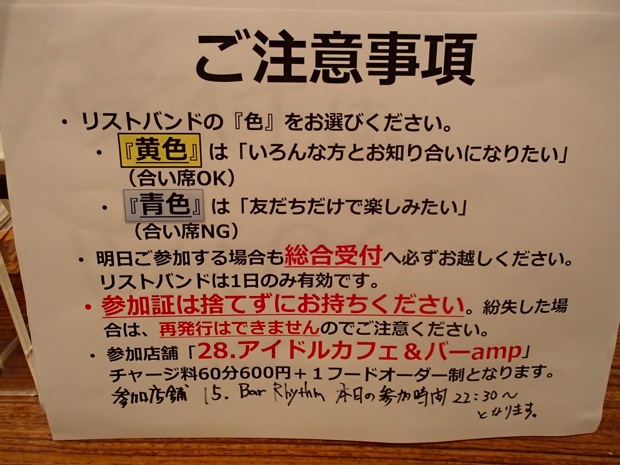 ご注意事項
・ リストバンドの『色』をお選びください。
・ 『黄色』は「いろんな方とお知り合いになりたい」
（合い席OK）
・ 『青色』は「友だちだけで楽しみたい」
（合い席NG）
・ 明日ご参加する場合も総合受付へ必ずお越しください。
リストバンドは1日のみ有効です。
・ 参加証は捨てずにお持ちください。紛失した場
合は、再発行はできませんのでご注意ください。
・ 参加店舗「28.アイドルカフェ＆バーamp」
チャージ料60分600円＋１フードオーダー制となります。
参加店舗 15. Bar Rhythm 本日の参加時間 22:30〜
となります。